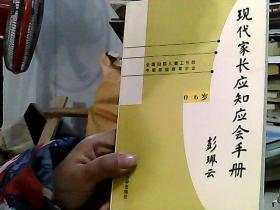 现代家长应知应会手册
彭珮云
0-6岁
全国妇联儿童工作部
中国家庭教育学会